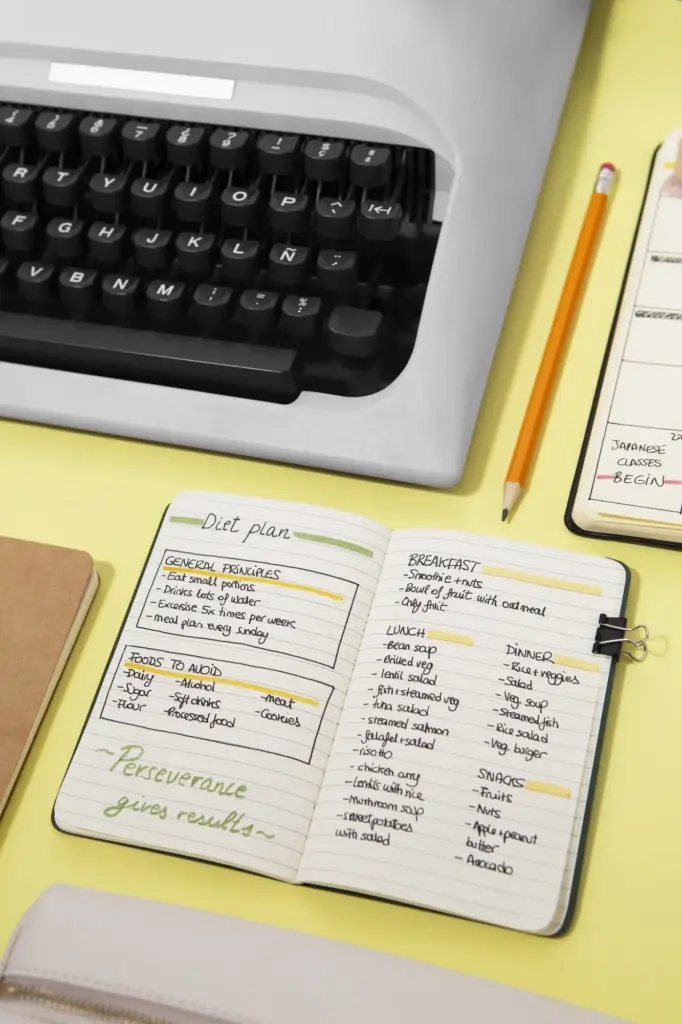 R T Y U I O P
F G H J K L Ñ
V B N M
JAPANESE
CLASSES
BEGIN
Diet plan
GENERAL PRINCIPLES
- Eat small portions
- Drinks lots of water
- Excersise 5x times per week
- Meal plan every sunday
FOODS TO AVOID
- Dairy
- Sugar
- Flour
- Alcohol
- Soft drinks
- Processed food
- Meat
- Cookies
~Perseverance
gives results~
BREAKFAST
- Smoothie + nuts
- Bowl of fruit with oatmeal
- Only fruit
LUNCH
- Bean soup
- Grilled veg
- lentil salad
- fish + steamed veg
- tuna salad
- steamed salmon
- falafel + salad
- risotto
- chicken curry
- Lentils with rice
- Mushroom soup
- sweet potatoes
with salad
DINNER
- Rice + veggies
- Salad
- Veg. soup
- Steamed fish
- Rice salad
- Veg. burger
SNACKS
- Fruits
- Nuts
- Apple + peanut
butter
- Avocado